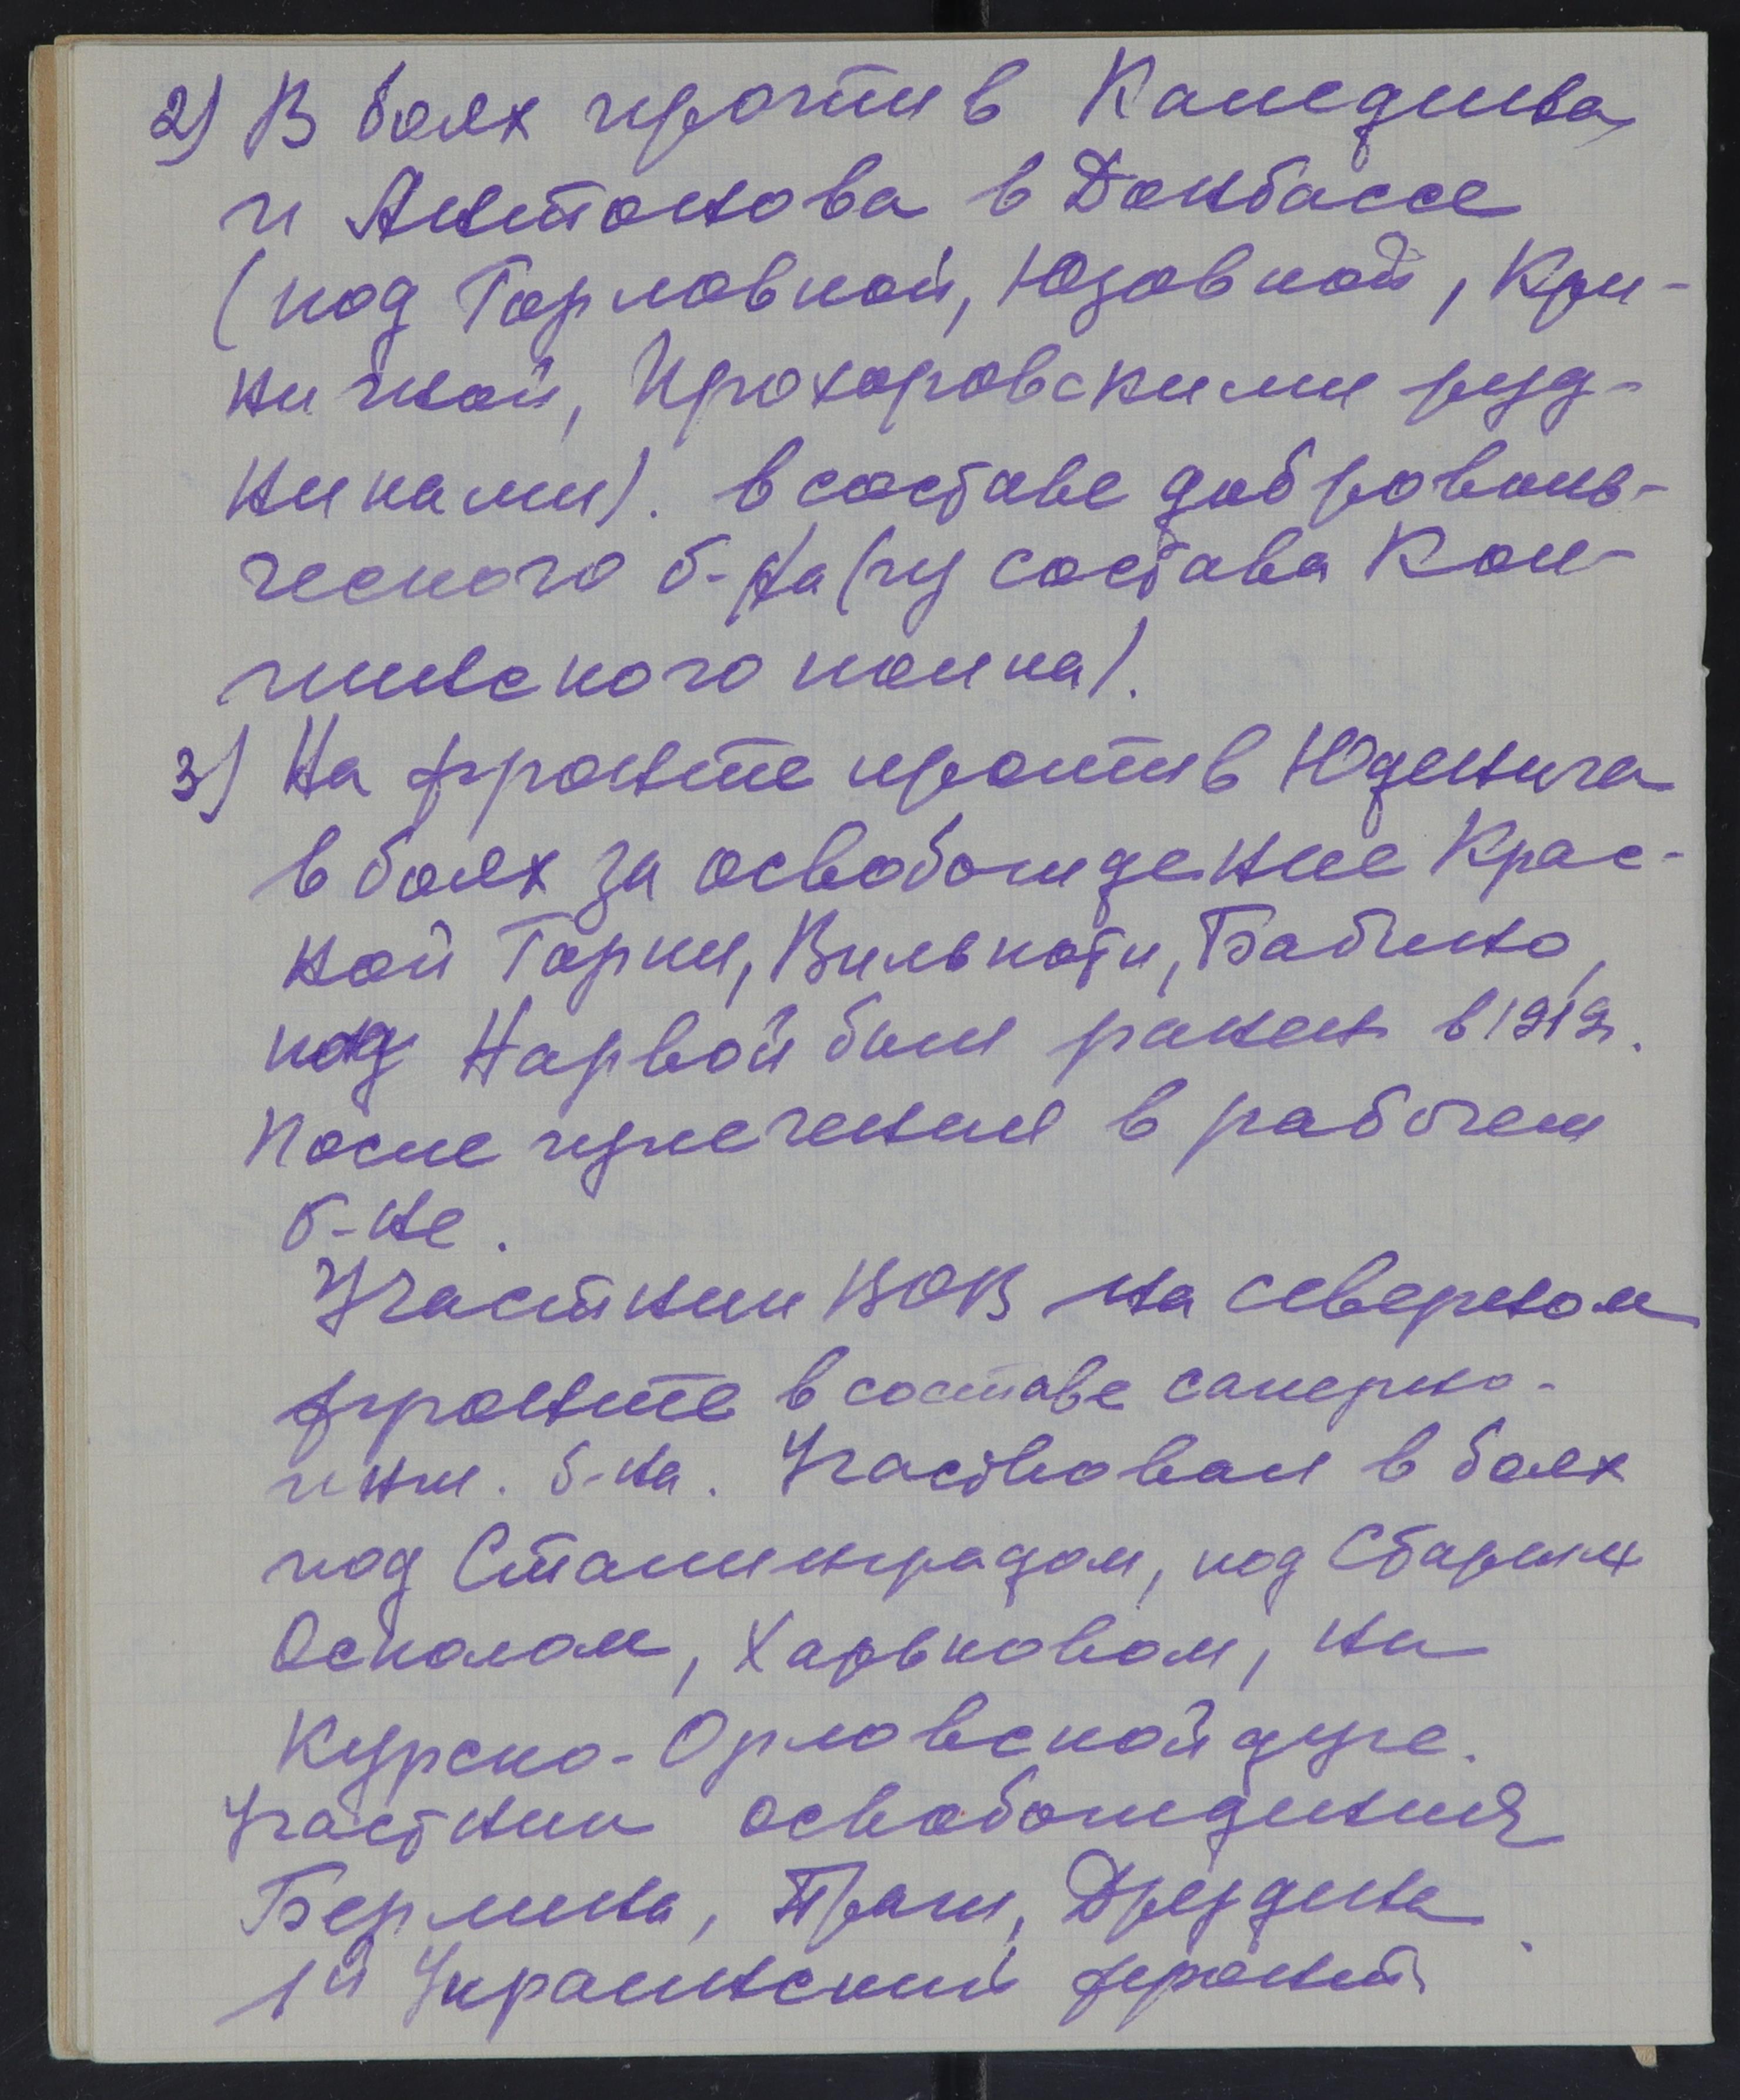 2) В боях против Каледина
и Антонова в Донбассе
(под Горловкой, Юзовкой, Кри-
ничной, Прохоровскими руд-
никами). в составе доброволь-
ческого б-на (из состава Кол-
пинского полка).
3) На фронте против Юденича
в боях за освобождение Крас-
ной Горки, Вилькоти, Бабино,
под Нарвой был ранен в 1919.
После излечения в рабочем
б-не.
Участник ВОВ на северном
фронте в составе саперно-
инж. б-на. Участвовал в боях
под Сталинградом, под Старым
Осколом, Харьковом, на
Курско-Орловской дуге.
Участник освобождения
Берлина, Праги, Дрездена.
1й Украинский фронт